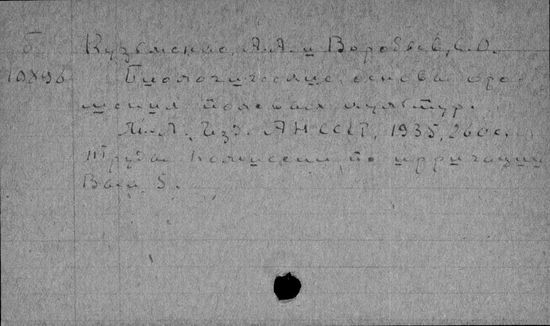 Б Кузьменко, А.А. и Воробьев, С.О.
10896 Биологические основы оро-
шения полевых культур.
М.-Л., Изд. АН СССР, 1935, 260 с.
Труды Комиссии по ирригации
Вып. 5.